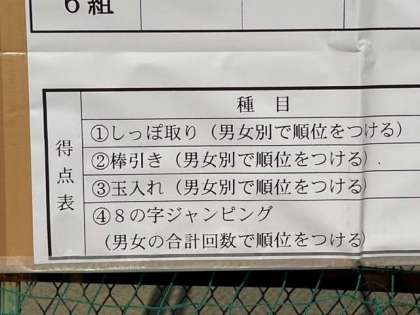 6組
種目
得点表
①しっぽ取り（男女別で順位をつける）
②棒引き（男女別で順位をつける）.
③玉入れ（男女別で順位をつける）
④8の字ジャンピング
（男女の合計回数で順位をつける）